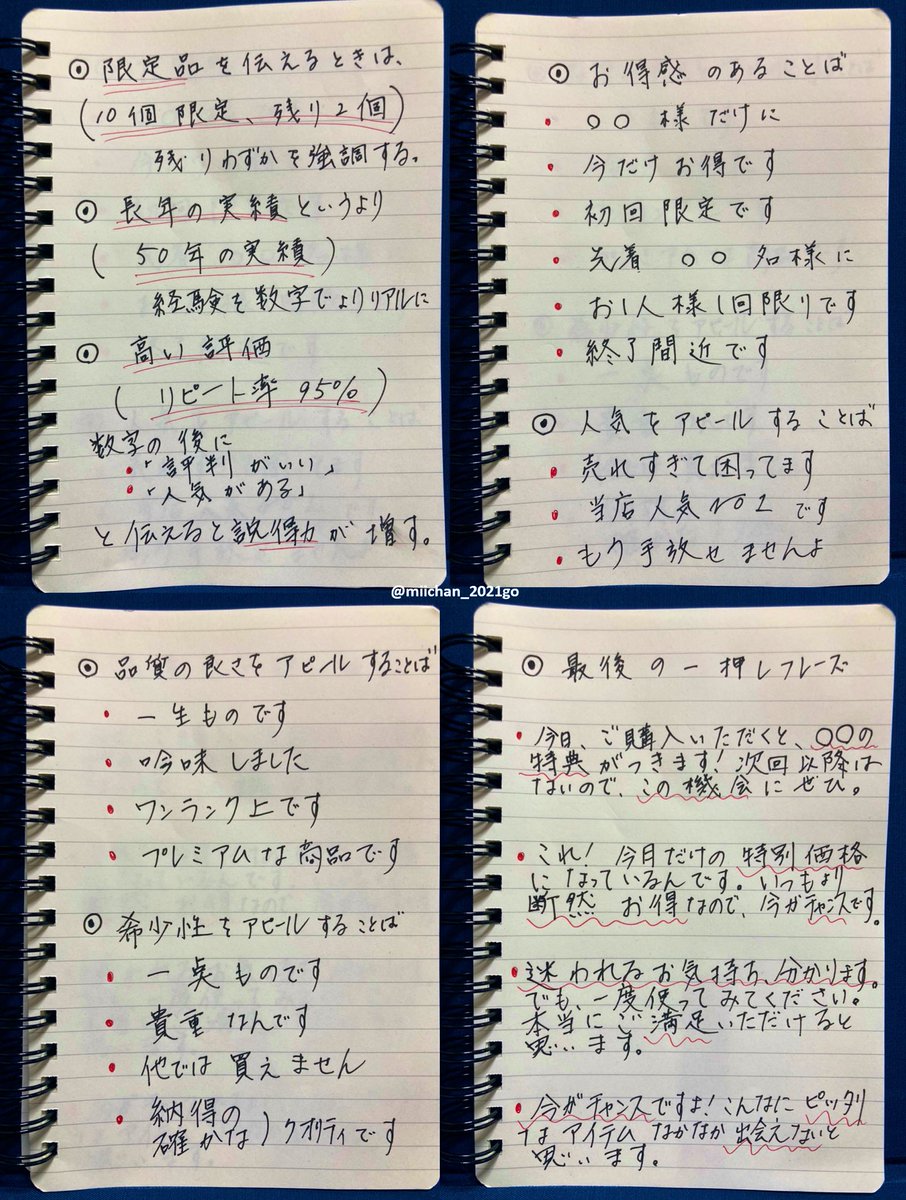 ◉ 限定品を伝えるときは、
(10個限定、残り2個)
残りわずかを強調する。
◉ 長年の実績というより
( 50年の実績 )
経験を数字でよりリアルに
◉ 高い評価
( リピート率 95% )
数字の後に
・「評判がいい」
・「人気がある」
と伝えると説得力が増す。
◉ お得感のあることば
・ ○○ 様だけに
・ 今だけお得です
・ 初回限定です
・ 先着 ○○ 名様に
・ お1人様1回限りです
・ 終了間近です
◉ 人気をアピールすることば
・ 売れすぎて困ってます
・ 当店人気NO1です
・ もう手放せませんよ
@miichan_2021go
◉ 品質の良さをアピールすることば
・ 一生ものです
・ 吟味しました
・ ワンランク上です
・ プレミアムな商品です
◉ 希少性をアピールすることば
・ 一点ものです
・ 貴重なんです
・ 他では買えません
・ 納得の
確かな ) クオリティです
◉ 最後の一押しフレーズ
・今日、ご購入いただくと、○○の
特典がつきます!次回以降は
ないので、この機会にぜひ。
・これ! 今月だけの特別価格
になっているんです。いつもより
断然 お得なので、今がチャンスです。
・迷われるお気持ち、分かります。
でも、一度使ってみてください。
本当にご満足いただけると
思います。
・今がチャンスですよ!こんなにピッタリ
なアイテムなかなか出会えないと
思います。